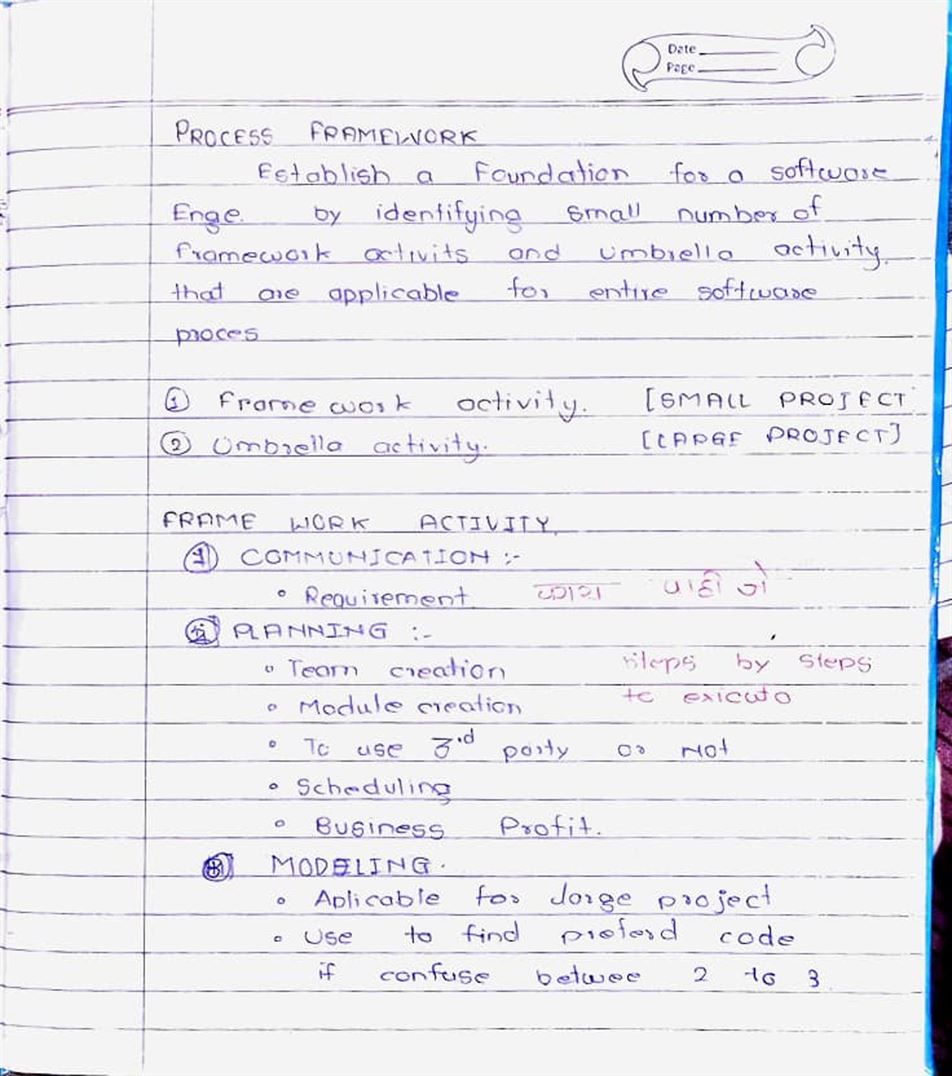 Date
Page
PROCESS FRAMEWORK
Establish a Foundation for a software
Enge. by identifying small number of
framework activits and umbrella activity.
that are applicable for entire software
proces
① Frame work activity. [SMALL PROJECT
② Umbrella activity. [LARGE PROJECT]
FRAME WORK ACTIVITY.
① COMMUNICATION :-
• Requirement काय पाहीजे
② PLANNING :-
• Team creation steps by steps
• Module creation to exicuto
• To use 3rd party or Not
• Scheduling
• Business Profit.
③ MODELING.
• Aplicable for large project
• Use to find preferd code
if confuse betwee 2 to 3